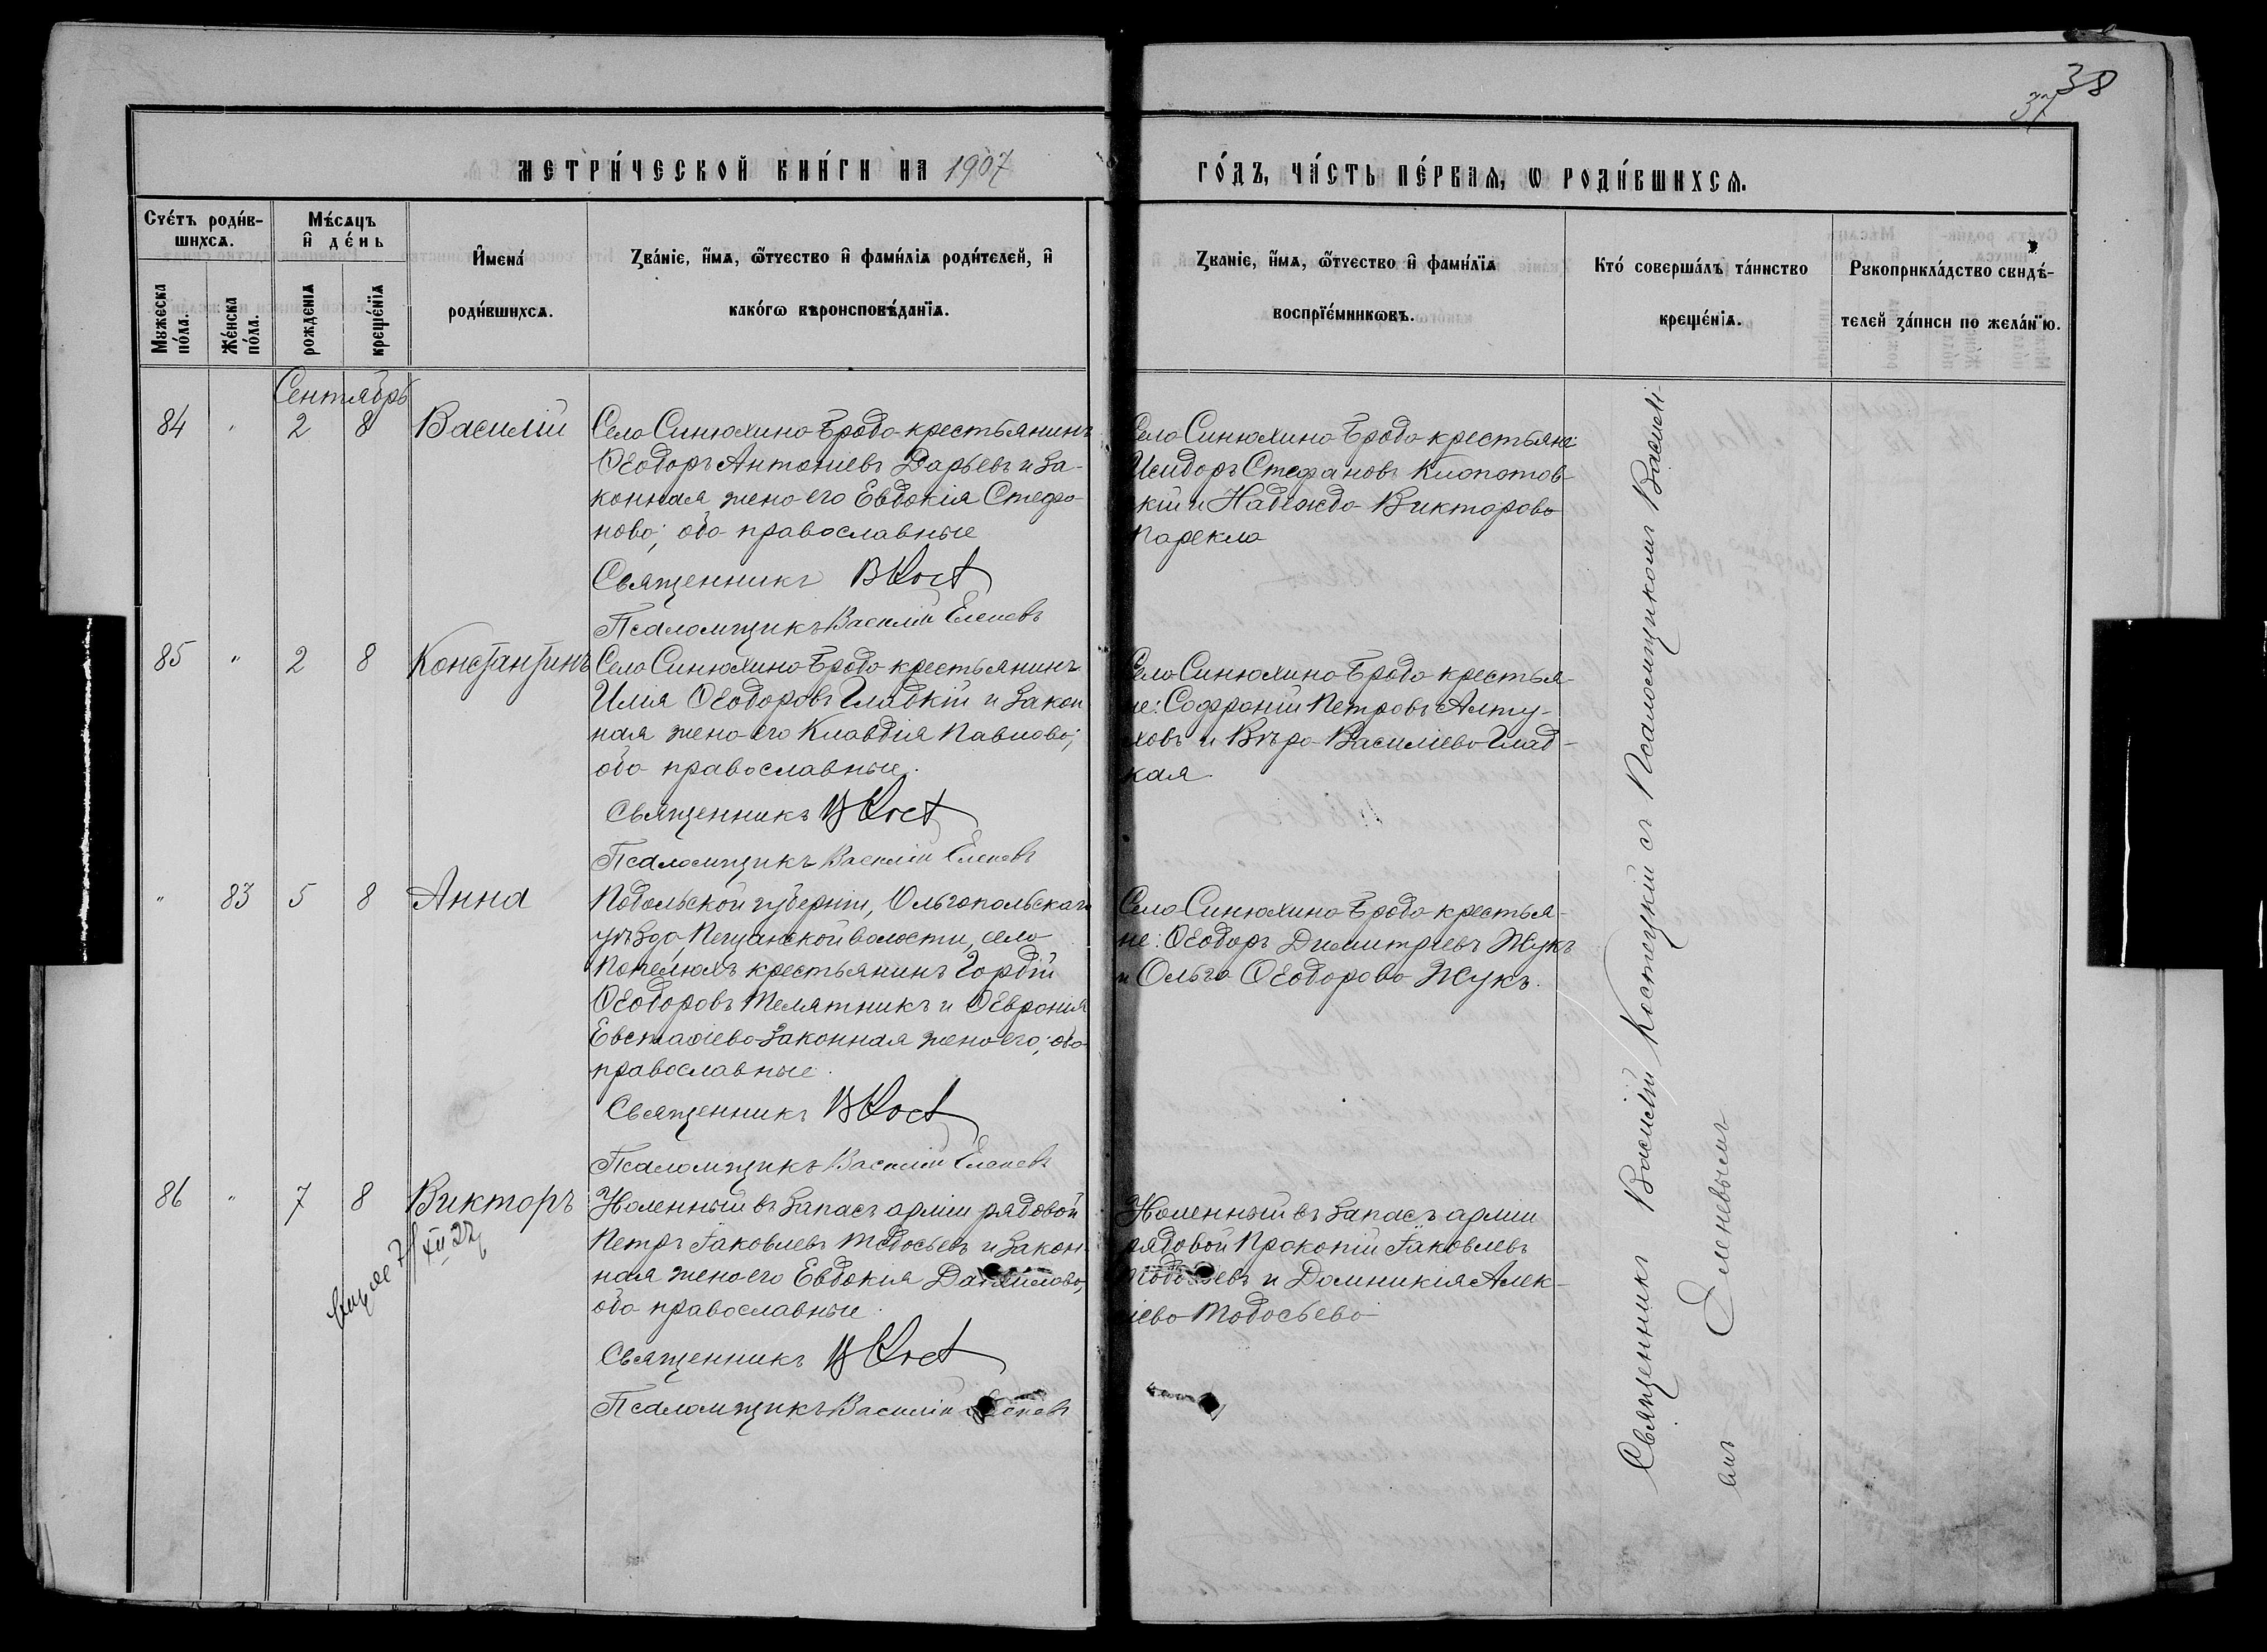 38
37
МЕТРИ́ЧЕСКОЙ КНИ́ГИ НА 1907
ГО́ДЪ, ЧА́СТЬ ПЕ́РВАЯ, Ѡ РОДИ́ВШИХСѦ.
Счéтъ роди́в-
шихсѧ.
Мѣ́сѧцъ
и҆ дéнь
Мужеска
по́ла.
Же́нска
по́ла.
рождéнiѧ
крещéнїѧ
И҆мена́
роди́вшихсѧ.
Зва́нїе, и҆́мѧ, ѻ҆́тчество и҆ фами́лїѧ роди́телей, и҆
како́гѡ вѣроисповѣ́данїѧ.
Званїе, и҆́мѧ, ѻ҆́тчество и҆ фами́лїѧ
воспрїе́мникѡвъ.
Кто́ соверша́лъ та́инство
крещéнїѧ.
Рукоприкла́дство свидѣ́-
телей за́писи по жела́нїю.
Сентябрь
84 " 2 8 Василій
Село Синюхино Брода крестьянинъ
Ѳеодоръ Антоніевъ Дарьевъ и за-
конная жена его Евдокія Стефа-
нова; оба православные
Священникъ ВКост
Псаломщикъ Василій Еленевъ
Село Синюхино Брода крестьяне:
Исидоръ Стефановъ Клопотов-
скій и Надежда Викторова
Парекла
85 " 2 8 Константинъ
Село Синюхино Брода крестьянинъ
Илія Ѳеодоровъ Гладкій и закон
ная жена его Клавдія Павлова;
оба православные.
Священникъ ВКост
Псаломщикъ Василій Еленевъ
Село Синюхино Брода крестья-
не: Софроній Петровъ Алту-
ховъ и Вѣра Василіева Глад-
кая
" 83 5 8 Анна
Подольской губерніи, Ольгопольскаго
уѣзда Пещанской волости, села
Попелюхъ крестьянинъ Гордій
Ѳеодоровъ Телятникъ и Ѳевронія
Евстафіева законная жена его; оба
православные.
Священникъ ВКост
Псаломщикъ Василій Еленевъ
Село Синюхино Брода крестья-
не: Ѳеодоръ Димитріевъ Жукъ
и Ольга Ѳеодорова Жукъ.
86 " 7 8 Викторъ
7/XII 32
Уволенный въ запасъ арміи рядовой
Петръ Іаковлевъ Тодосьевъ и закон-
ная жена его Евдокія Даніилова,
оба православные.
Священникъ ВКост
Псаломщикъ Василій Еленевъ
Уволенный въ запасъ арміи
рядовой Прокопій Іаковлевъ
Тодосьевъ и Домникія Алек-
сіева Тодосьева
Священникъ Василій Костецкій съ Псаломщикомъ Василі-
емъ Еленевымъ